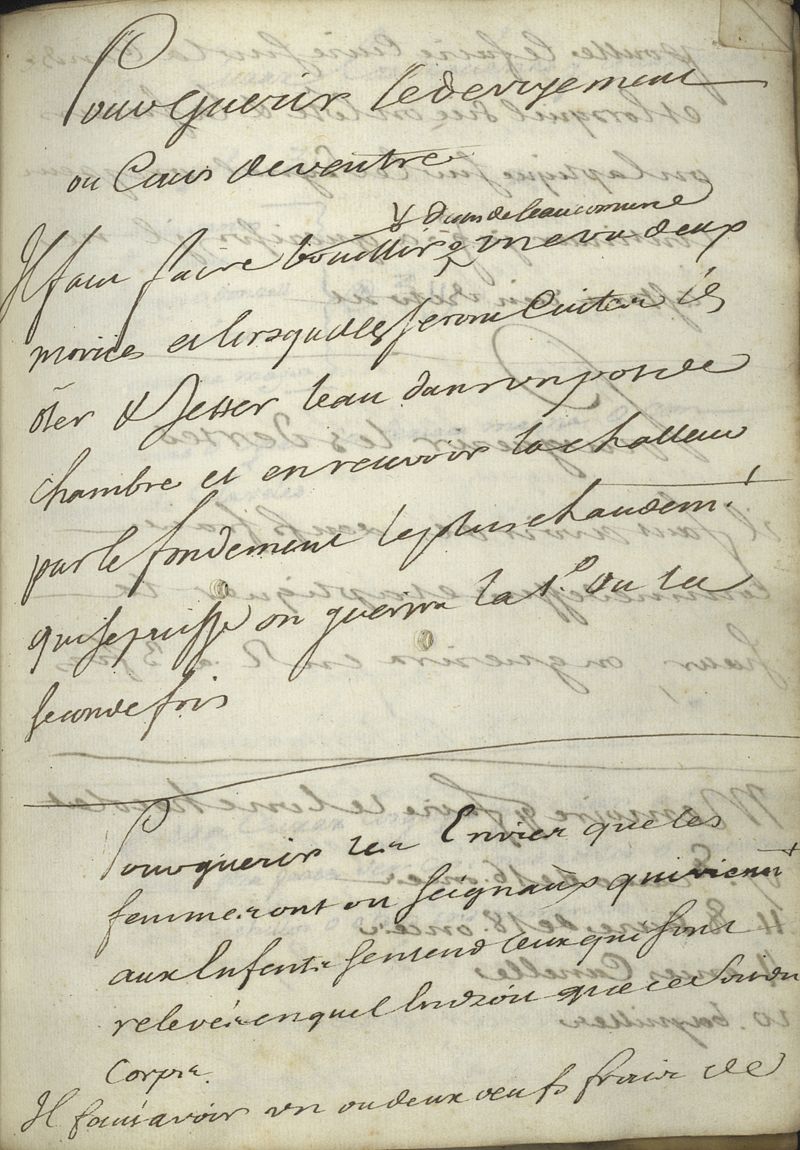 Pour guerir le devoyement
ou Cours de ventre
dans de leau comune
Il faut faire bouillir une ou deux
morües et lorsquelles seront Cuites les
ôter & Jetter leau dans un pot de
chambre et en recevoir la challeur
par le fondement le plus chaudemt.
qui se puisse on guerira la 1.e ou la
seconde fois
Pour guerir les Envies que les
femmes ont ou seignaux qui vienent
aux Enfents sentend ceux qui sont
relevés en quel Endroit que ce soit du
Corps.
Il faut avoir un ou deux oeufs frais de